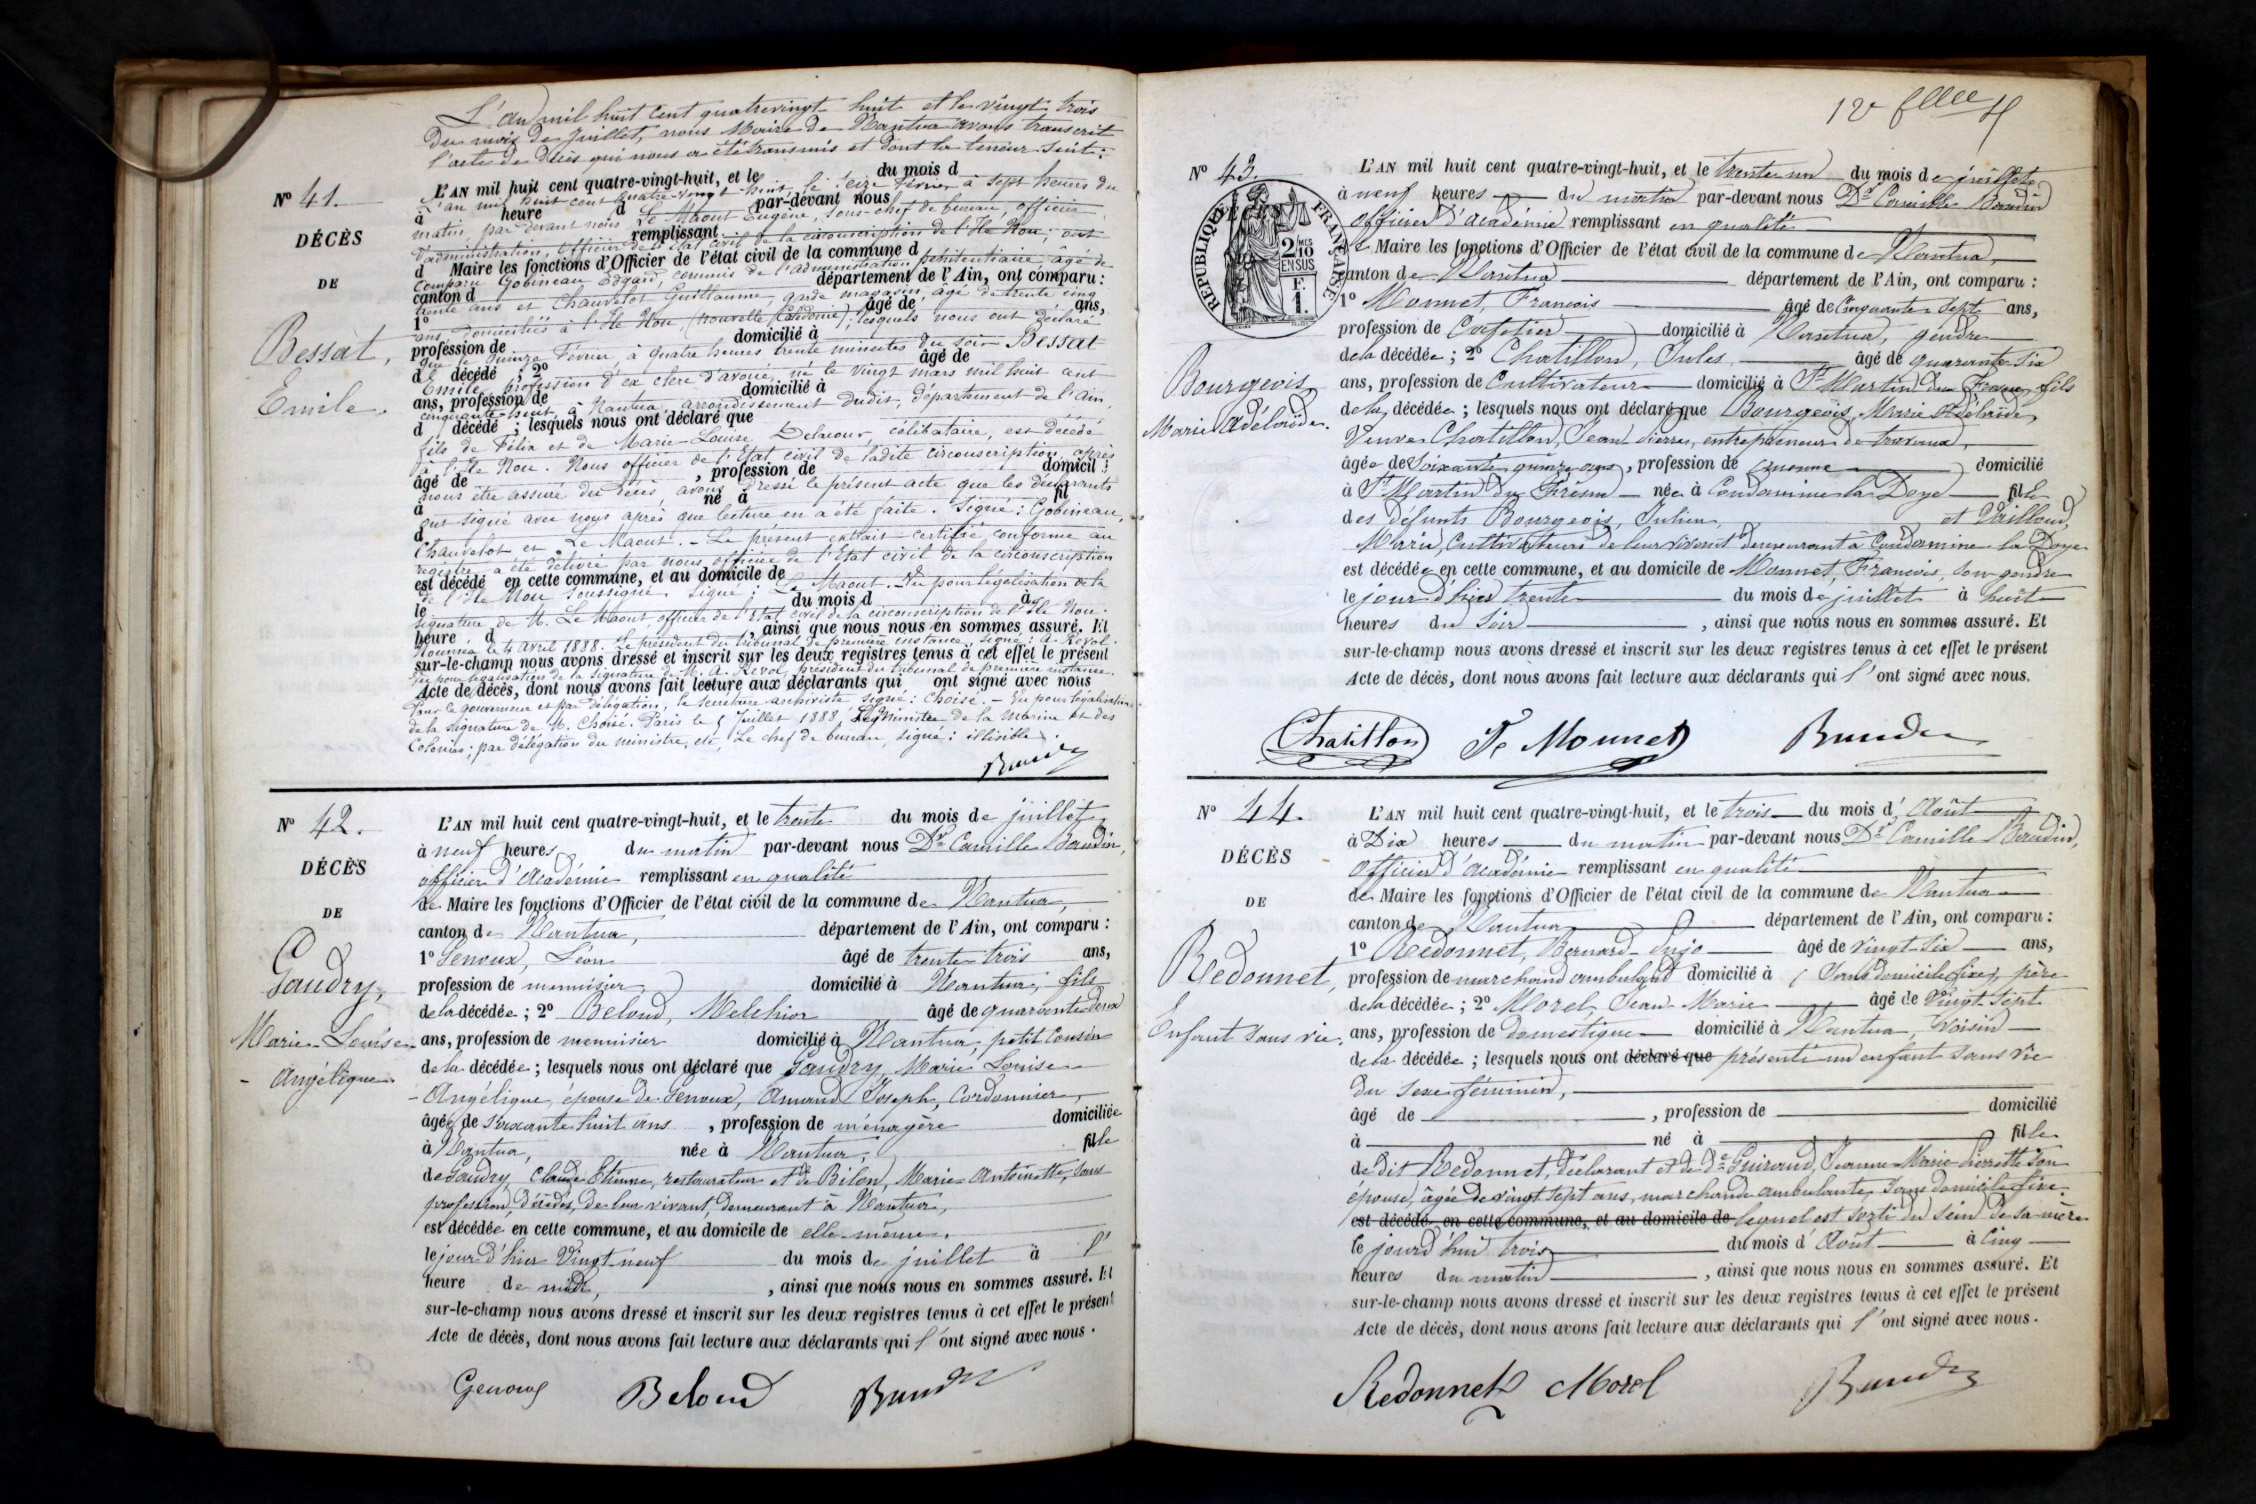 L'an mil huit cent quatrevingt huit et le vingt trois
du mois de Juillet, nous Maire de Nantua avons transcrit
l'acte de décès qui nous a été transmis et dont la teneur suit :
N° 41.
DÉCÈS
DE
Bessat,
Emile.
L'AN mil huit cent quatre-vingt-huit, et le du mois d
L'an mil huit cent quatre-vingt huit, le seize Février à sept heures du
à heure d par-devant nous
matin, par devant nous Le Maout Eugène, sous-chef de bureau, officier
remplissant
d'administration, officier de l'Etat civil de la circonscription de l'Ile Nou, ont
d Maire les fonctions d'Officier de l'état civil de la commune d
comparu Gobineau Edgard, commis de l'administration pénitentiaire, âgé de
canton d département de l'Ain, ont comparu :
trente ans et Chauvelot Guillaume, garde magasin, âgé de trente cinq
1° âgé de ans,
ans domiciliés à l'Ile Nou, (nouvelle Calédonie) ; lesquels nous ont déclaré
profession de domicilié à
que le quinze Février, à quatre heures trente minutes du soir Bessat
d décédé ; 2° âgé de
Emile, profession d'ex clerc d'avoué, né le vingt mars mil huit cent
ans, profession de domicilié à
cinquante-huit, à Nantua, arrondissement dudit, département de l'Ain,
d décédé ; lesquels nous ont déclaré que
fils de Félix et de Marie-Louise Delacour, célibataire, est décédé
à l'Ile Nou. Nous officier de l'Etat civil de ladite circonscription, après
âgé de , profession de domicil
nous être assuré du décès, avons dressé le présent acte que les déclarants
à né à fil
ont signé avec nous après que lecture en a été faite. Signé : Gobineau,
d
Chauvelot et Le Maout. - Le présent extrait certifié conforme au
registre a été délivré par nous officier de l'Etat civil de la circonscription
est décédé en cette commune, et au domicile de
de l'Ile Nou soussigné. Signé : Le Maout. Vu pour légalisation de la
le du mois d à
signature de M. Le Maout officier de l'Etat civil de la circonscription de l'Ile Nou.
heure d , ainsi que nous nous en sommes assuré. Et
Nouméa le 4 avril 1888. Le président du tribunal de première instance, signé : A. Revol.
sur-le-champ nous avons dressé et inscrit sur les deux registres tenus à cet effet le présent
Vu pour légalisation de la signature de M. A. Revol, président du tribunal de première instance.
Acte de décès, dont nous avons fait lecture aux déclarants qui ont signé avec nous
Pour le gouverneur et par délégation, le secrétaire archiviste signé : Choisé. - Vu pour légalisation
de la signature de M. Choisé. Paris le 5 Juillet 1888, Le Ministre de la Marine et des
Colonies : par délégation du ministre, etc, Le chef de bureau, signé : illisible.
Baudin
N° 42.
DÉCÈS
DE
Gaudry,
Marie-Louise
- Angélique
L'AN mil huit cent quatre-vingt-huit, et le trente du mois de juillet,
à neuf heures du matin par-devant nous Dr Camille Baudin,
officier d'Académie remplissant en qualité
de Maire les fonctions d'Officier de l'état civil de la commune de Nantua,
canton de Nantua, département de l'Ain, ont comparu :
1° Genoux, Léon âgé de trente trois ans,
profession de menuisier domicilié à Nantua, fils
de la décédée ; 2° Beloud, Melchior âgé de quarante deux
ans, profession de menuisier domicilié à Nantua, petit cousin
de la décédée ; lesquels nous ont déclaré que Gaudry, Marie Louise
- Angélique, épouse de Genoux, Amand Joseph, Cordonnier,
âgée de soixante huit ans , profession de ménagère domiciliée
à Nantua, née à Nantua, fille
de Gaudry, Claude Etienne, restaurateur et de Bilon, Marie Antoinette, sans
profession, décédés, de leur vivant, demeurant à Nantua,
est décédée en cette commune, et au domicile de elle-même,
le jour d'hier Vingt neuf du mois de juillet à l'
heure de midi, , ainsi que nous nous en sommes assuré. Et
sur-le-champ nous avons dressé et inscrit sur les deux registres tenus à cet effet le présent
Acte de décès, dont nous avons fait lecture aux déclarants qui l'ont signé avec nous.
Genoux Beloud Baudin
12e
N° 43.
REPUBLIQUE FRANÇAISE
2 MES 10
EN SUS
F.
1.
Bourgeois
Marie Adélaïde.
L'AN mil huit cent quatre-vingt-huit, et le trente un du mois de juillet
à neuf heures du matin par-devant nous Dr Camille Baudin
officier d'académie remplissant en qualité
de Maire les fonctions d'Officier de l'état civil de la commune de Nantua,
canton de Nantua département de l'Ain, ont comparu :
1° Monnet, François âgé de Cinquante-sept ans,
profession de Cafetier domicilié à Nantua, gendre
de la décédée ; 2° Chatillon, Jules, âgé de quarante six
ans, profession de Cultivateur domicilié à St Martin du Fresne, fils
de la décédée ; lesquels nous ont déclaré que Bourgeois, Marie Adélaïde,
Veuve Chatillon, Jean Pierre, entrepreneur de travaux,
âgée de soixante quinze ans, profession de domicilié
à St Martin du Fresne née à Condamine la Doye fille
des défunts Bourgeois, Julien, et Vailloud,
Marie, Cultivateurs de leur vivant demeurant à Condamine la Doye
est décédée en cette commune, et au domicile de Monnet, François, son gendre
le jour d'hier trente du mois de juillet à huit
heures du soir , ainsi que nous nous en sommes assuré. Et
sur-le-champ nous avons dressé et inscrit sur les deux registres tenus à cet effet le présent
Acte de décès, dont nous avons fait lecture aux déclarants qui l'ont signé avec nous.
Chatillon Fs Monnet Baudin
N° 44.
DÉCÈS
DE
Redonnet,
Enfant sans vie.
L'AN mil huit cent quatre-vingt-huit, et le trois du mois d'Août
à Dix heures du matin par-devant nous Dr Camille Baudin,
officier d'académie remplissant en qualité
de Maire les fonctions d'Officier de l'état civil de la commune de Nantua
canton de Nantua département de l'Ain, ont comparu :
1° Redonnet, Bernard âgé de vingt-six ans,
profession de marchand ambulant domicilié à (sans domicile fixe), père
de la décédée ; 2° Morel, Jean-Marie âgé de vingt sept
ans, profession de domestique domicilié à Nantua, voisin
de la décédée ; lesquels nous ont déclaré que présenté un enfant sans vie
du sexe féminin,
âgé de , profession de domicilié
à né à fille
de dit Redonnet, déclarant et de De Guiraud, Jeanne Marie Pierrette son
épouse, âgée de vingt sept ans, marchande ambulante, sans domicile fixe.
est décédé en cette commune, et au domicile de lequel est sorti du sein de sa mère
le jourd'hui trois du mois d'Août à cinq
heures du matin , ainsi que nous nous en sommes assuré. Et
sur-le-champ nous avons dressé et inscrit sur les deux registres tenus à cet effet le présent
Acte de décès, dont nous avons fait lecture aux déclarants qui l'ont signé avec nous.
Redonnet Morel Baudin